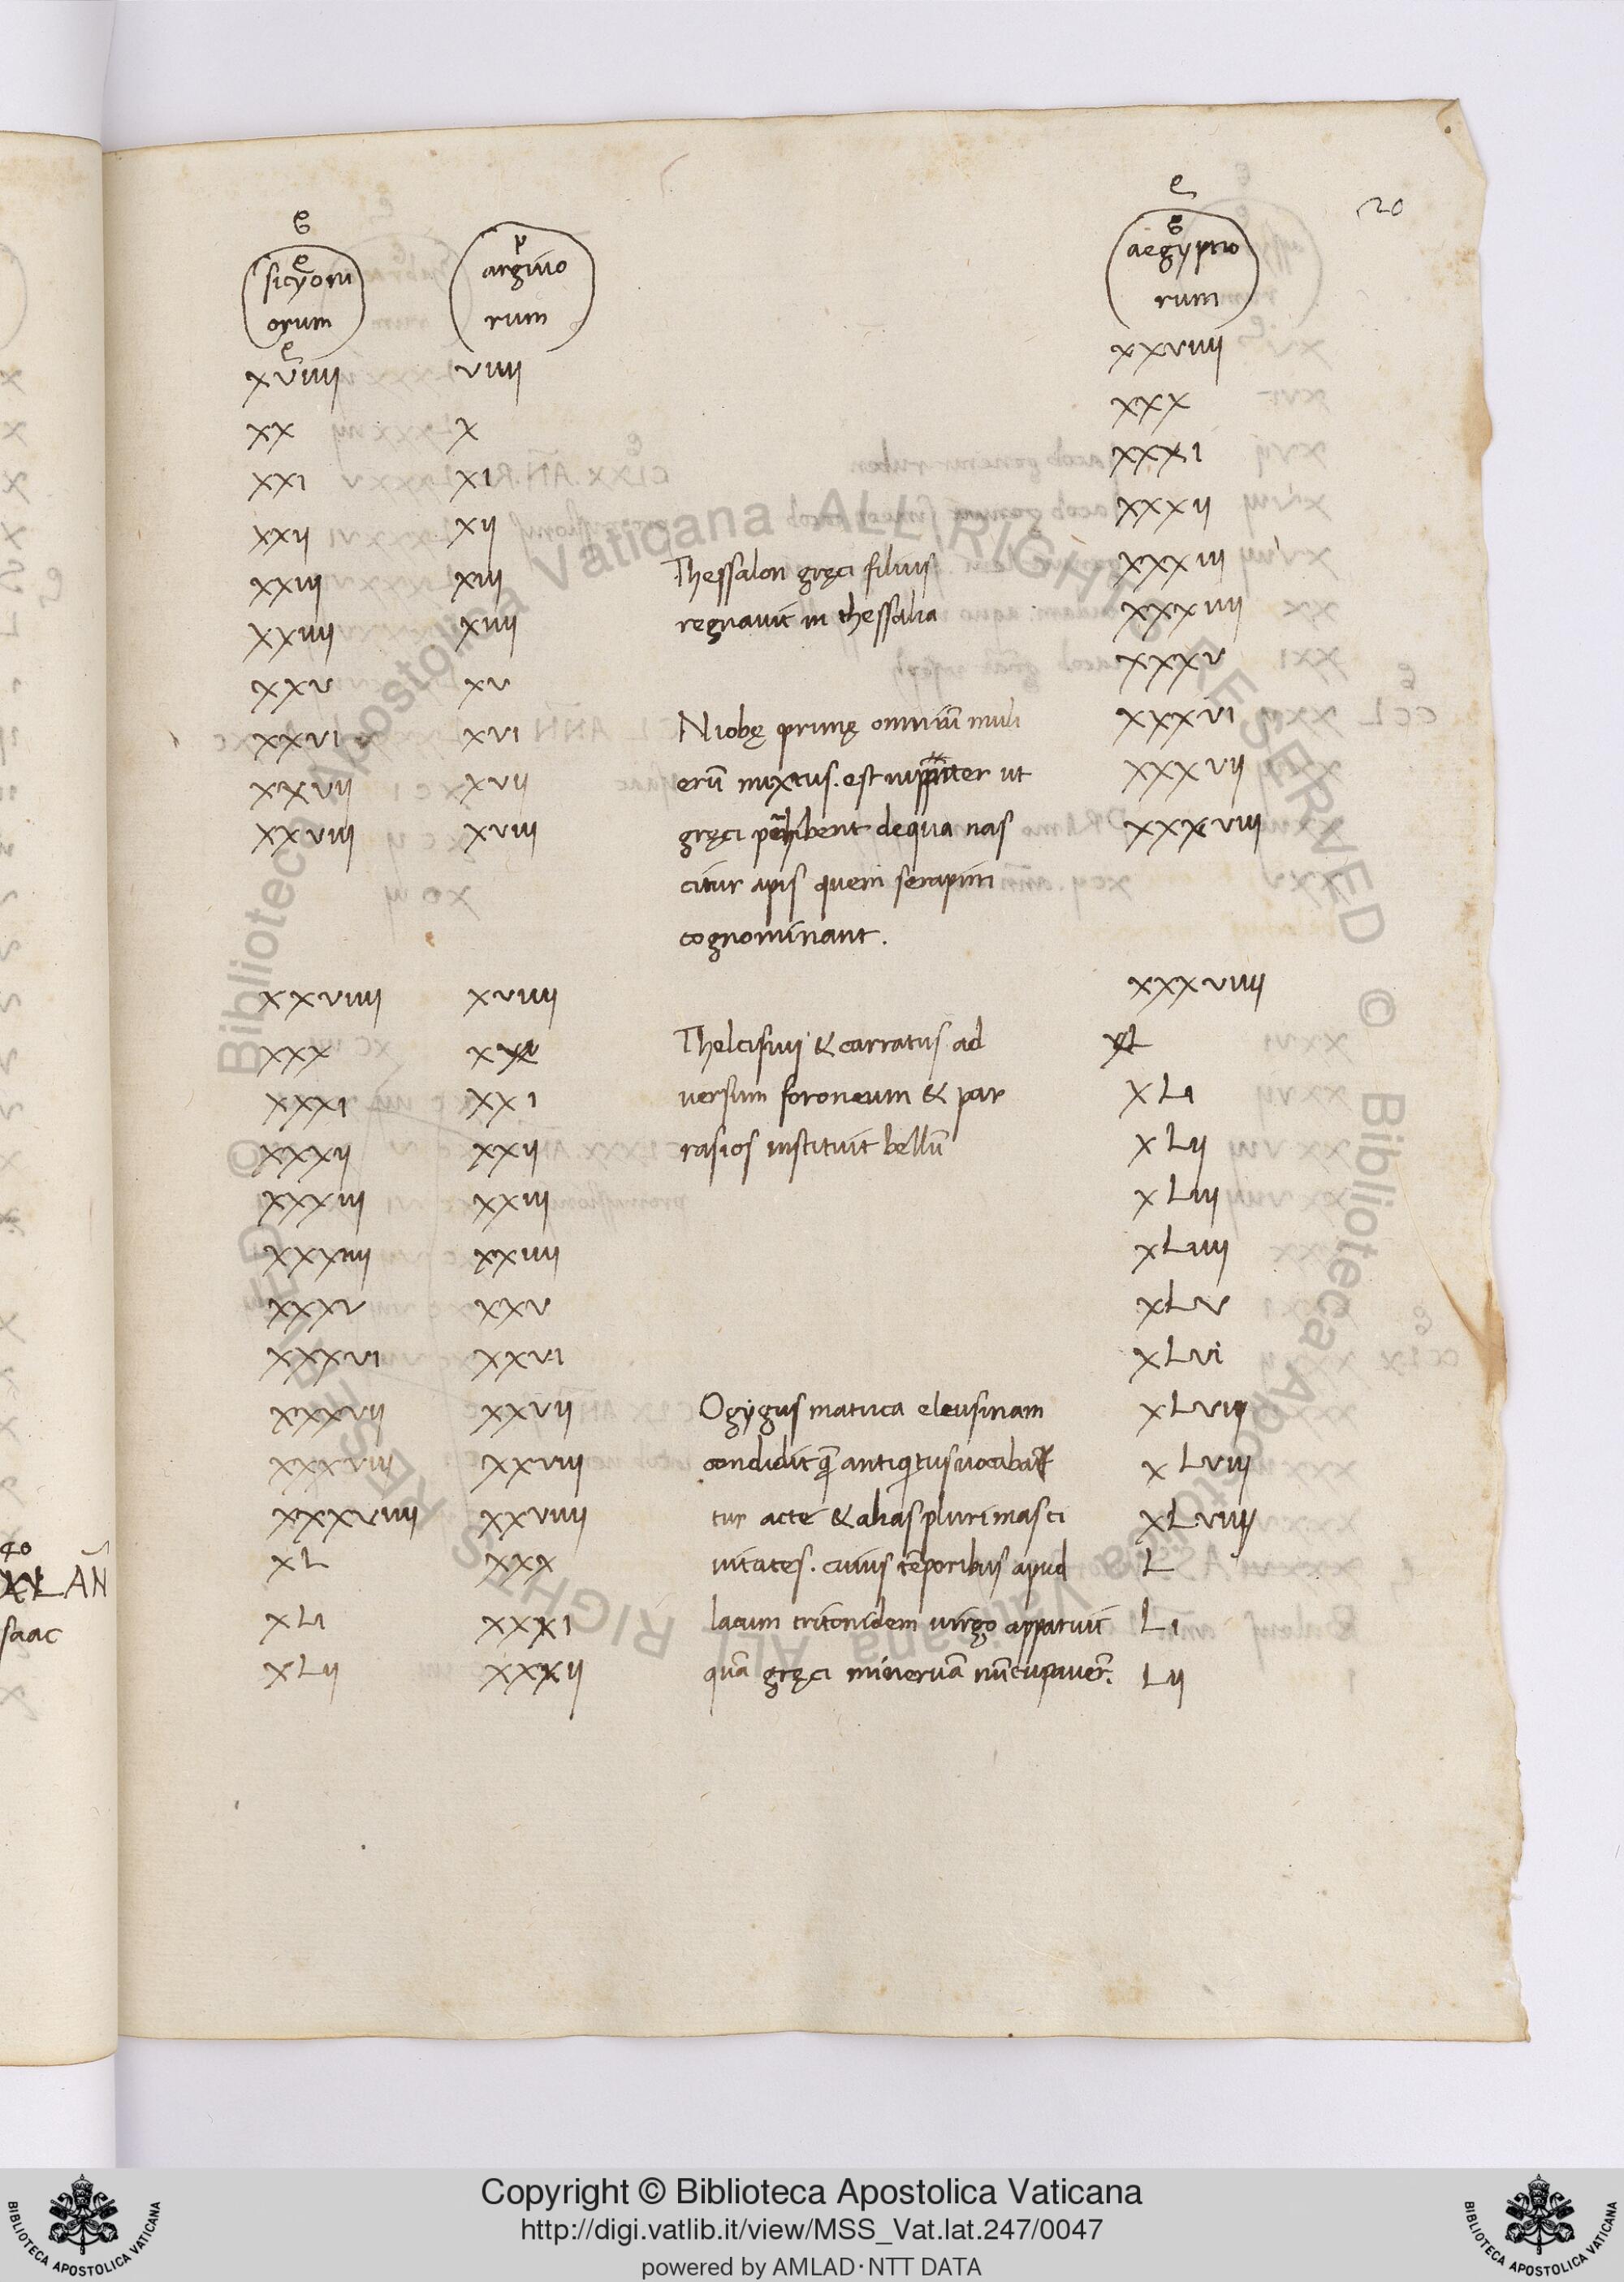 20
sicyoni argiuo aegyptio
orum rum rum
xviiij viiij xxviiij
xx x xxx
xxi xi xxxi
xxij xij xxxij
xxiij xiij Thessalon gręci filius xxxiij
xxiiij xiiij regnavit in thessalia xxxiiij
xxv xv xxxv
xxvi xvi Niobę primę omniū muli xxxvi
xxvij xvij erū mixtus. est iuppiter ut xxxvij
xxviij xviij gręci perhibent de qua nas xxxviij
citur apis quem serapim
cognominant.
xxviiij xviiij xxxviiij
xxx xx Thelcisius & carratus ad xL
xxxi xxi uersum foroneum & par xLi
xxxij xxij rasios instituit bellū xLij
xxxiij xxiij xLiij
xxxiiij xxiiij xLiiij
xxxv xxv xLv
xxxvi xxvi xLvi
xxxvij xxvij Ogygus matuca eleusinam xLvij
xxxviij xxviij condidit q̄ antiqitus uocaba xLviij
xxxviiij xxviiij tur acte & alias plurimas ci xLviiij
xL xxx uitates. cuius tēporibus apud L
xLi xxxi lacum tritonidem uirgo apparuit Li
xLij xxxij quā gręci mineruā nūcupauer̄. Lij
40
xL AÑ
saac
Copyright © Biblioteca Apostolica Vaticana
http://digi.vatlib.it/view/MSS_Vat.lat.247/0047
powered by AMLAD·NTT DATA
BIBLIOTECA APOSTOLICA VATICANA
BIBLIOTECA APOSTOLICA VATICANA
© Biblioteca Apostolica Vaticana ALL RIGHTS RESERVED
© Biblioteca Apostolica Vaticana ALL RIGHTS RESERVED